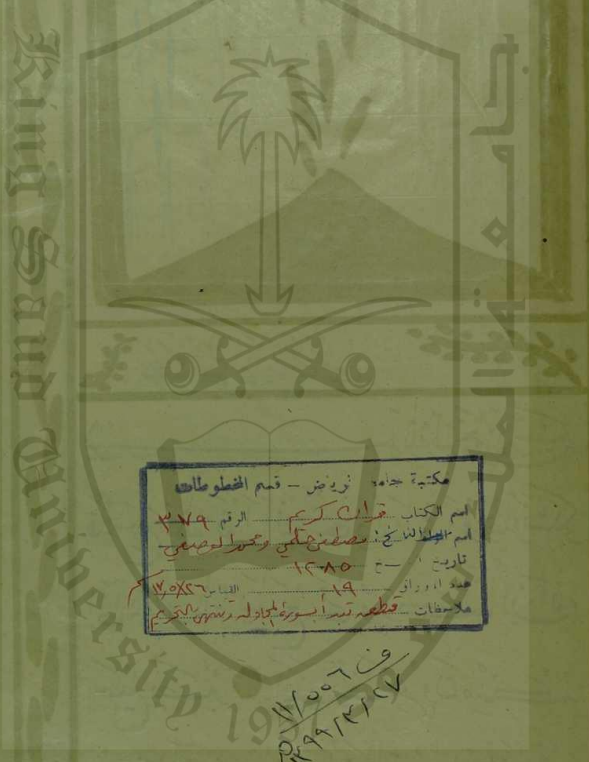 King Saud University
جامعة الملك سعود
مكتبة جامعة الرياض - قسم المخطوطات
اسم الكتاب قرآن كريم الرقم ٣٧٩
اسم الناسخ: مصطفى حلمي ومحمد الوصيفي
تاريخ ١٢٨٥
عدد الأوراق ١٩ القياس ٢٦×١٧,٥ سم
ملاحظات قطعه تبدأ بسورة المجادله وتنتهي بالتحريم
ف ١١/٥٥٦
١٣٩٩/٣/٢٧
1957